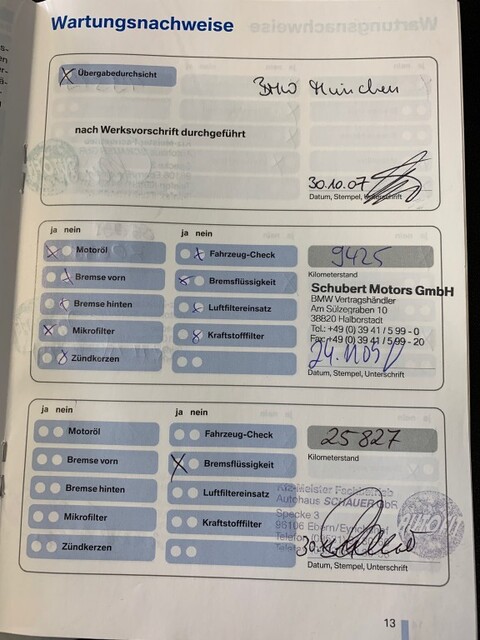 Wartungsnachweise
Übergabedurchsicht
BMW München
nach Werksvorschrift durchgeführt
30.10.07
Datum, Stempel, Unterschrift
ja nein
ja nein
Motoröl
Fahrzeug-Check
9425
Bremse vorn
Bremsflüssigkeit
Kilometerstand
Bremse hinten
Luftfiltereinsatz
Mikrofilter
Kraftstofffilter
Zündkerzen
Schubert Motors GmbH
BMW Vertragshändler
Am Sülzegraben 10
38820 Halberstadt
Tel.: +49 (0) 39 41 / 5 99 - 0
Fax: +49 (0) 39 41 / 5 99 - 20
Datum, Stempel, Unterschrift
ja nein
ja nein
Motoröl
Fahrzeug-Check
25827
Bremse vorn
Bremsflüssigkeit
Kilometerstand
Bremse hinten
Luftfiltereinsatz
Mikrofilter
Kraftstofffilter
Zündkerzen
Kfz-Meister Fachbetrieb
Autohaus SCHAUER GbR
Specke 3
96106 Ebern/
Telefon
Datum, Stempel, Unterschrift
13